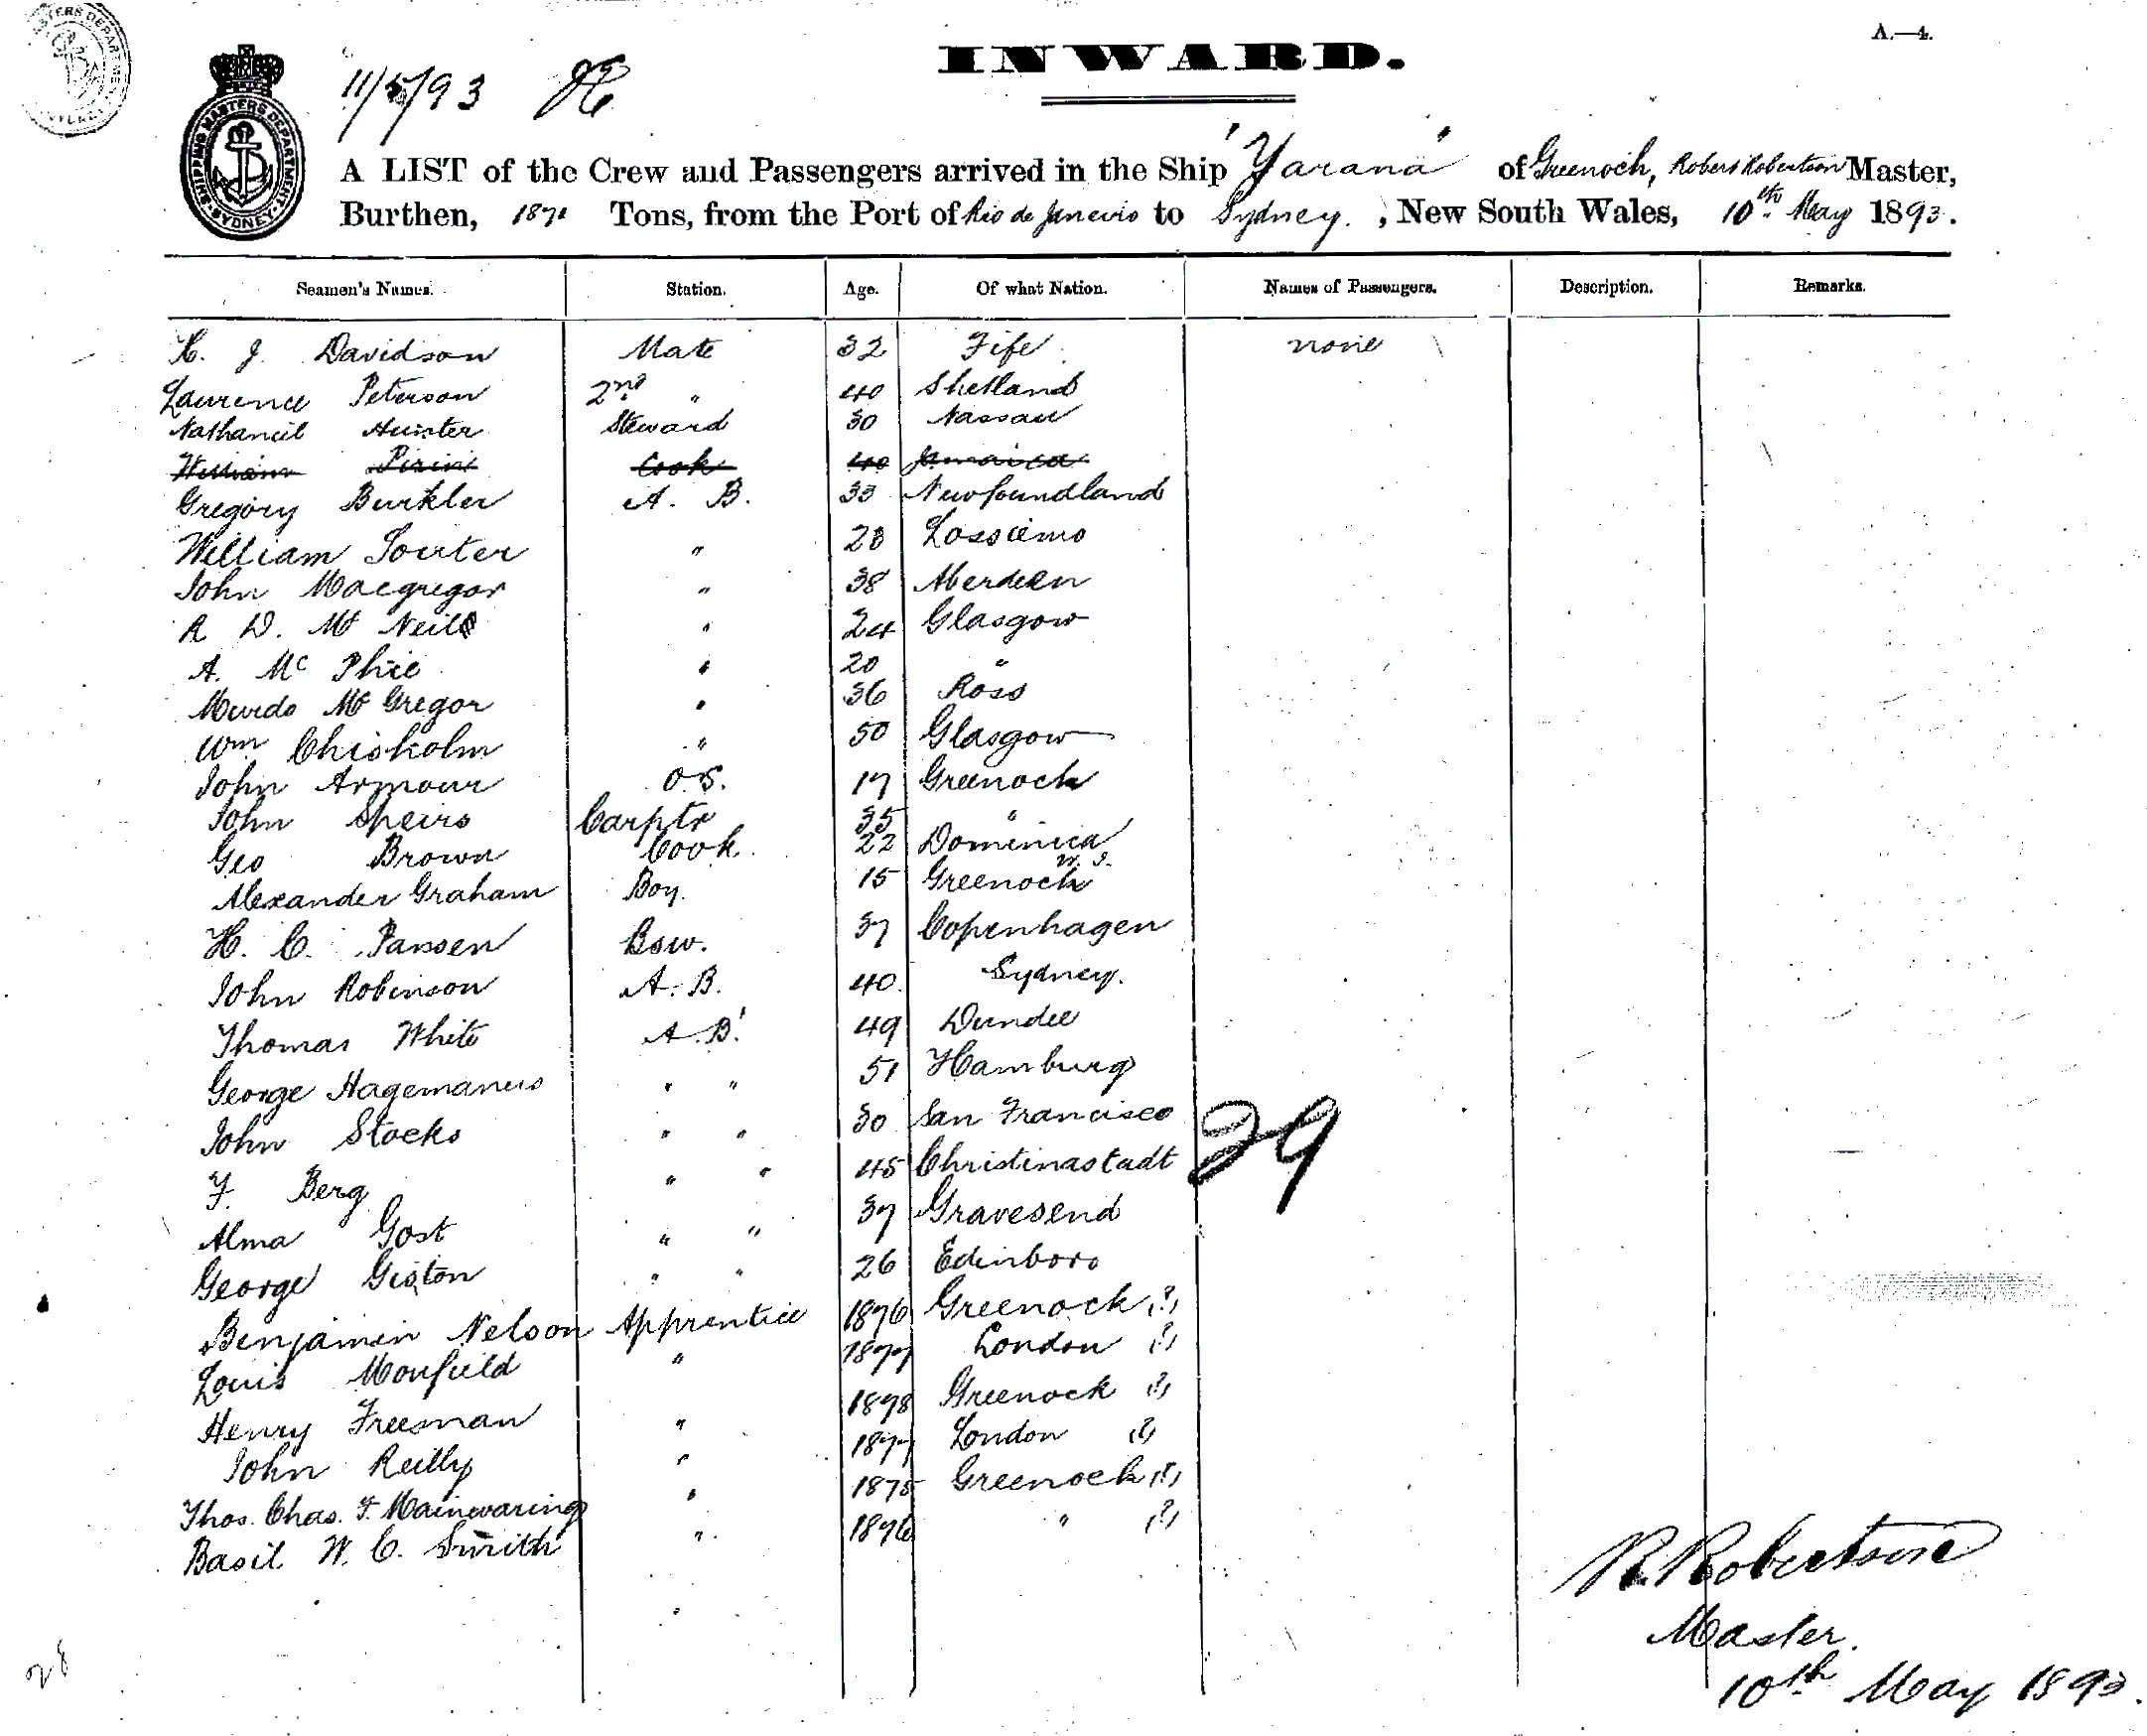 A.—4.
INWARD.
11/5/93
SHIPPING MASTERS DEPARTMENT SYDNEY
A LIST of the Crew and Passengers arrived in the Ship "Yarana" of Greenock, Robert Robertson Master,
Burthen, Tons, from the Port of Rio de Janeiro to Sydney. , New South Wales, 10th May 1893.
Seamen's Names. Station. Age. Of what Nation. Names of Passengers. Description. Remarks.
J. Davidson Mate 32 Fife none
Laurence Peterson 2nd " 40 Shetland
Nathaniel Hunter Steward 30 Nassau
William Cook 40 Jamaica
Gregory Burkler A. B. 33 Newfoundland
William Souter " 28 Lossiemo
John Macgregor " 38 Aberdeen
R D. Mc Neil " 24 Glasgow
A. Mc Phie " 20 "
Murdo Mc Gregor " 36 Ross
Wm Chisholm " 50 Glasgow
John Armour O.S. 17 Greenock
John Speirs Carptr 35 "
Geo Brown Cook. 22 Dominica W. I.
Alexander Graham Boy. 15 Greenock
H. C. Bsw. 37 Copenhagen
John Robinson A. B. 40. Sydney.
Thomas White A. B. 49 Dundee
George " " 51 Hamburg
John Stocks " " 30 San Francisco
F. Berg " " 45 Christinastadt
Alma Gost " " 37 Gravesend
George Giston " " 26 Edinboro
Benjamin Nelson Apprentice 1876 Greenock (?)
Louis Monfield " 1877 London (?)
Henry Freeman " 1878 Greenock (?)
John Reilly " 1877 London (?)
Thos. Chas. F. Mainwaring " 1875 Greenock (?)
Basil W. C. Smith " 1876 " (?)
29
R. Robertson
Master.
10th May 1893.
28